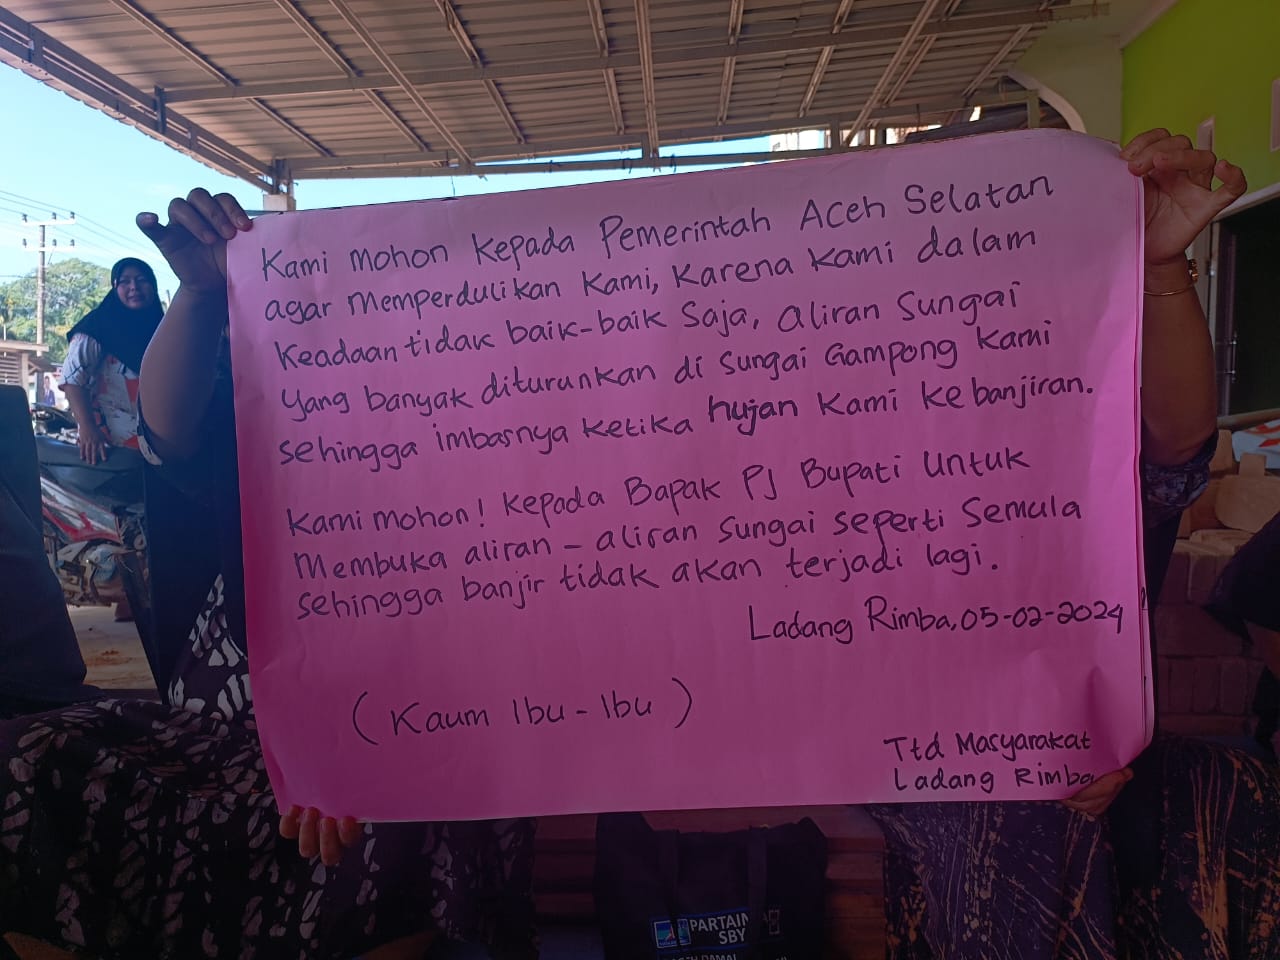 Kami Mohon Kepada Pemerintah Aceh Selatan
agar Memperdulikan Kami, Karena Kami dalam
Keadaan tidak baik-baik Saja, aliran Sungai
Yang banyak diturunkan di Sungai Gampong Kami
sehingga imbasnya Ketika hujan Kami Kebanjiran.
Kami Mohon! Kepada Bapak PJ Bupati Untuk
Membuka aliran - aliran Sungai seperti Semula
Sehingga banjir tidak akan terjadi lagi.
Ladang Rimba, 05-02-2024
(Kaum Ibu-Ibu)
Ttd Masyarakat
Ladang Rimba
PARTAI
SBY